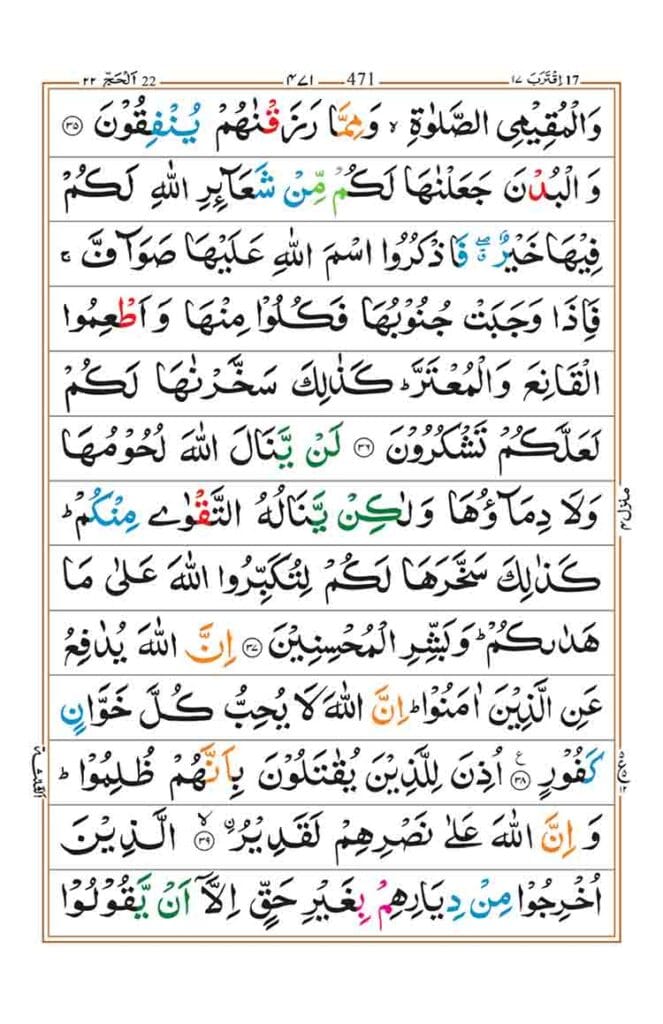 اِقْتَرَبَ ١٧ 17 471 ٤٧١ اَلْحَجّ ٢٢ 22
وَالْمُقِيْمِي الصَّلٰوةِ ۙ وَمِمَّا رَزَقْنٰهُمْ يُنْفِقُوْنَ ﴿۳۵﴾
وَ الْبُدْنَ جَعَلْنٰهَا لَكُمْ مِّنْ شَعَآئِرِ اللّٰهِ لَكُمْ
فِيْهَا خَيْرٌ ۖ فَاذْكُرُوا اسْمَ اللّٰهِ عَلَيْهَا صَوَآفَّ ۚ
فَاِذَا وَجَبَتْ جُنُوْبُهَا فَكُلُوْا مِنْهَا وَ اَطْعِمُوا
الْقَانِعَ وَالْمُعْتَرَّ ؕ كَذٰلِكَ سَخَّرْنٰهَا لَكُمْ
لَعَلَّكُمْ تَشْكُرُوْنَ ﴿۳۶﴾ لَنْ يَّنَالَ اللّٰهَ لُحُوْمُهَا
وَلَا دِمَآؤُهَا وَلٰكِنْ يَّنَالُهُ التَّقْوٰى مِنْكُمْ ؕ
كَذٰلِكَ سَخَّرَهَا لَكُمْ لِتُكَبِّرُوا اللّٰهَ عَلٰى مَا
هَدٰىكُمْ ؕ وَبَشِّرِ الْمُحْسِنِيْنَ ﴿۳۷﴾ اِنَّ اللّٰهَ يُدٰفِعُ
عَنِ الَّذِيْنَ اٰمَنُوْا ؕ اِنَّ اللّٰهَ لَا يُحِبُّ كُلَّ خَوَّانٍ
كَفُوْرٍ ﴿۳۸﴾ ع اُذِنَ لِلَّذِيْنَ يُقٰتَلُوْنَ بِاَنَّهُمْ ظُلِمُوْا ؕ
وَ اِنَّ اللّٰهَ عَلٰى نَصْرِهِمْ لَقَدِيْرُ ﴿۳۹﴾ ۙ الَّذِيْنَ
اُخْرِجُوْا مِنْ دِيَارِهِمْ بِغَيْرِ حَقٍّ اِلَّآ اَنْ يَّقُوْلُوْا
منزل ٤